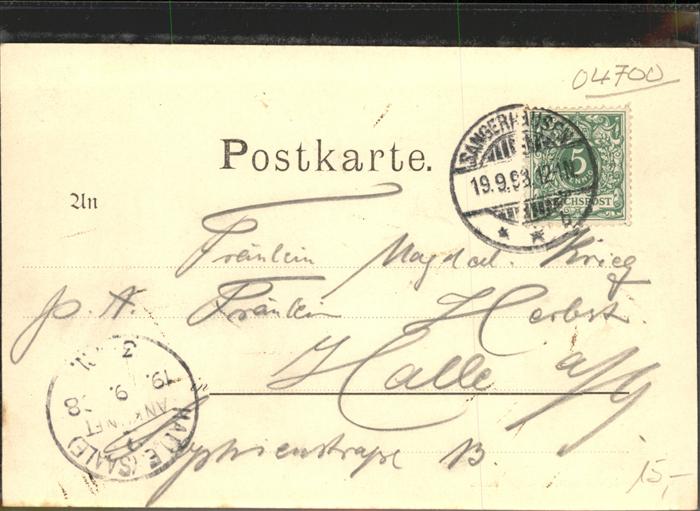 04700
Postkarte.
SANGERHAUSEN
19.9.98.12-1N.
5
REICHSPOST
An
Fräulein Magdal. Krieg
p. A. Fräulein Herbst.
Halle a/S
Sophienstraße 13.
3
19. 9. 98
ANKUNFT
HALLE (SAALE)
15,-